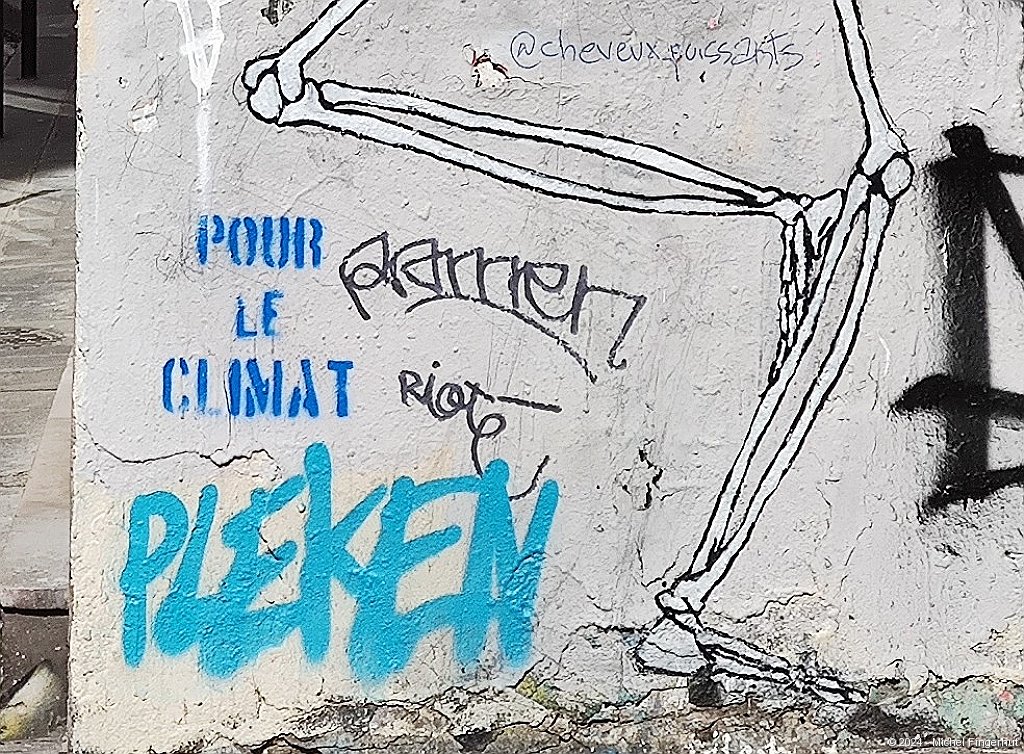 @cheveux.puiss2nts
POUR
LE
CLIMAT
RiOT
PLEKEN
© 2024 - Michel Fingerhut